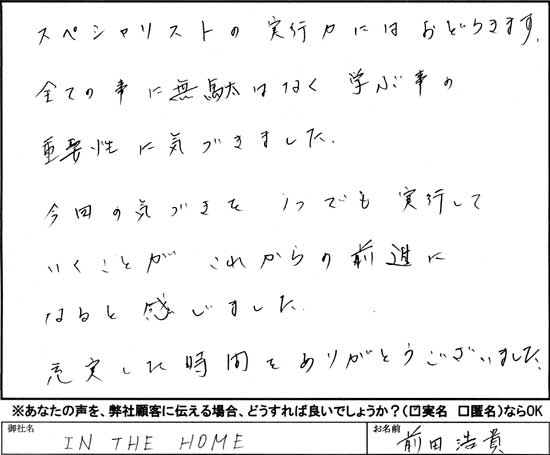 スペシャリストの実行力にはおどろきます。
全ての事に無駄はなく 学ぶ事の
重要性に気づきました。
今回の気づきを 1つでも実行して
いくことが これからの前進に
なると感じました。
充実した時間をありがとうございました。
※あなたの声を、弊社顧客に伝える場合、どうすれば良いでしょうか？（☑実名 □匿名）ならOK
御社名 IN THE HOME お名前 前田浩貴